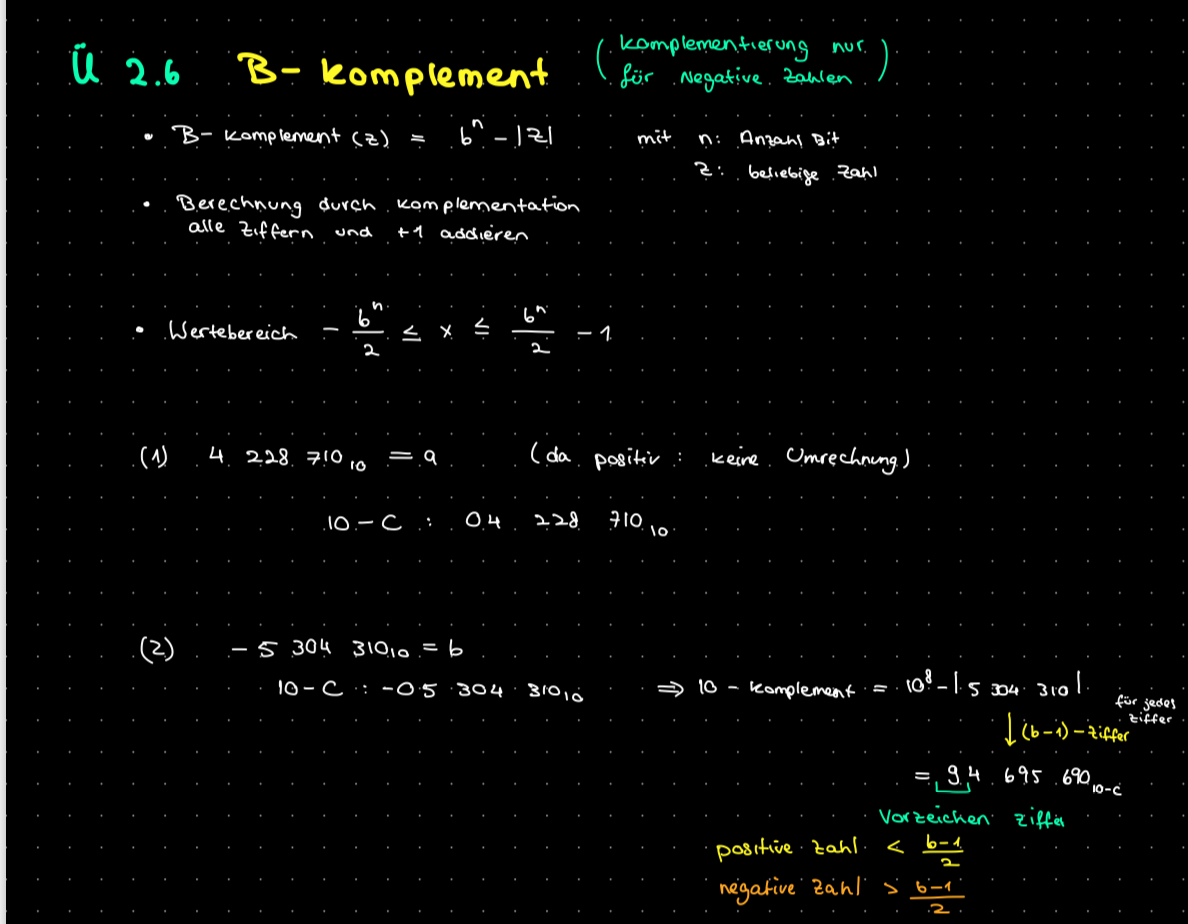 Ü 2.6 B-Komplement (Komplementierung nur für Negative Zahlen)
• B-Komplement (z) = b^n - |z| mit n: Anzahl Bit
z: beliebige Zahl
• Berechnung durch Komplementation
alle Ziffern und +1 addieren
• Wertebereich - b^n/2 ≤ x ≤ b^n/2 - 1
(1) 4 228 710₁₀ = a (da positiv : keine Umrechnung)
10-C : 04 228 710₁₀
(2) - 5 304 310₁₀ = b
10-C : -05 304 310₁₀ ⇒ 10-Komplement = 10^8 - |5 304 310|
für jedes
Ziffer
↓ (b-1)-Ziffer
= 94 695 690₁₀₋C
Vorzeichen Ziffer
positive Zahl < b-1/2
negative Zahl > b-1/2